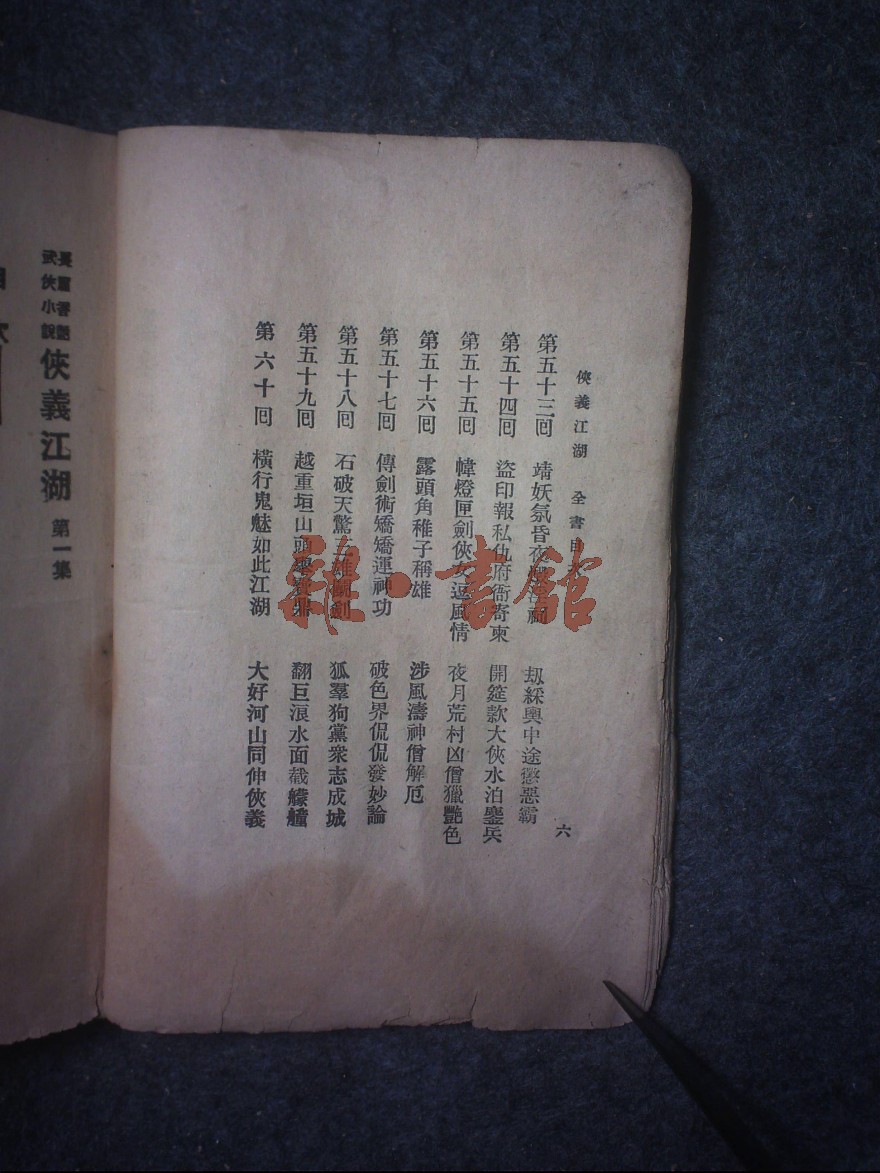 俠義江湖　全書目
六
第五十三回　靖妖氛昏夜　劫綵輿中途懲惡霸
第五十四回　盜印報私仇府衙寄柬　開筵款大俠水泊鏖兵
第五十五回　幃燈匣劍俠女逞風情　夜月荒村凶僧獵艷色
第五十六回　露頭角稚子稱雄　涉風濤神僧解厄
第五十七回　傳劍術矯矯運神功　破色界侃侃發妙論
第五十八回　石破天驚三雄鬭劍　狐羣狗黨衆志成城
第五十九回　越重垣山頭　寶鼎　翻巨浪水面截艨艟
第六十回　橫行鬼魅如此江湖　大好河山同伸俠義
長篇著
武俠小說
俠義江湖　第一集
雜·書館